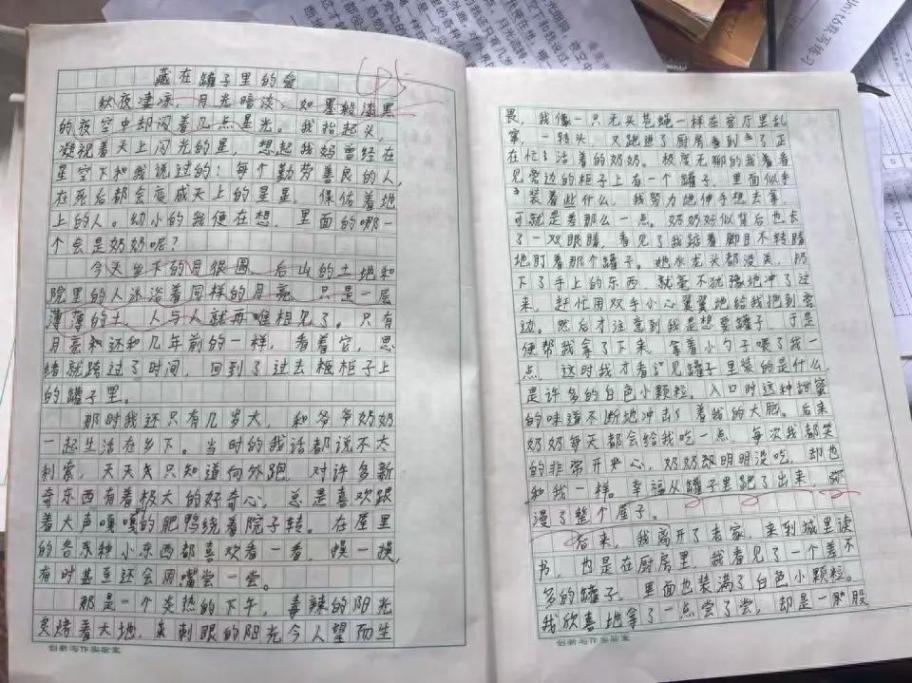 藏在罐子里的爱
秋夜凄凉，月光暗淡，如墨般漆黑
的夜空中却闪着几点星光。我抬起头，
凝视着天上闪光的星，想起我妈曾经在
星空下和我说过的：每个勤劳善良的人，
在死后都会变成天上的星星，保佑着地
上的人。幼小的我便在想，里面的哪一
个会是奶奶呢？
今天乡下的月很圆，后山的土地和
院里的人沐浴着同样的月亮，只是一层
薄薄的土，人与人就再难相见了。只有
月亮和还和几年前的一样，看着它，思
绪就跨过了时间，回到了过去柜子上
的罐子里。
那时我还只有几岁大，和爷爷奶奶
一起生活在乡下。当时的我话都说不大
利索，天天只知道向外跑，对许多新
奇东西有着极大的好奇心，总是喜欢跟
着大声嘎嘎的肥鸭绕着院子转。在屋里
的各种小东西都喜欢看一看，摸一摸，
有时甚至还会用嘴尝一尝。
那是一个炎热的下午，毒辣的阳光
炙烤着大地，刺眼的阳光令人望而生
畏，我像一只无头苍蝇一样在客厅里乱
窜，一转头，又跑进了厨房看到了正
在忙活着的奶奶。极度无聊的我看着
见旁边的柜子上有一个罐子，里面似乎
装着些什么，我努力地伸手想去拿，
可就是差那么一点。奶奶好似背后也长
了一双眼睛，看见了我踮着脚目不转睛
地盯着那个罐子。她水龙头都没关，扔
下了手上的东西，就毫不犹豫地冲了过
来，赶忙用双手小心翼翼地给我抱到旁
边。然后才注意到我是想要罐子，于是
便帮我拿了下来，拿着小勺子喂了我一
点，这时我才看见罐子里装的是什么，
是许多的白色小颗粒。入口时这种甜蜜
的味道不断地冲击着我的大脑。后来
奶奶每天都会给我吃一点，每次我都笑
的非常开心，奶奶却明明没吃，却也
和我一样。幸福从罐子里跑了出来，弥
漫了整个屋子。
后来，我离开了老家，来到城里读
书，也是在厨房里，我看见了一个差不
多的罐子，里面也装满了白色小颗粒。
我欣喜地拿了一点尝了尝，却是一股
创新写作实验室
创新写作实验室